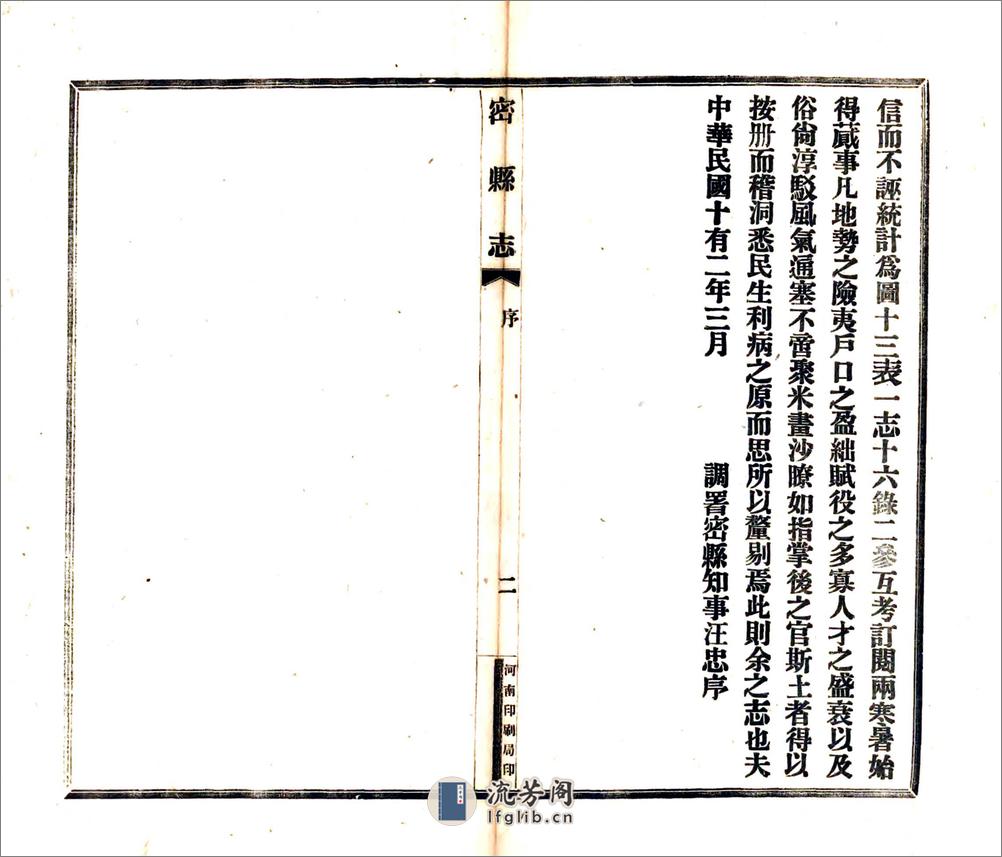 信而不誣統計爲圖十三表一志十六錄二參互考訂閱兩寒暑始
得蕆事凡地勢之險夷戶口之盈絀賦役之多寡人才之盛衰以及
俗尙淳駁風氣通塞不啻聚米畫沙瞭如指掌後之官斯土者得以
按册而稽洞悉民生利病之原而思所以釐剔焉此則余之志也夫
中華民國十有二年三月 調署密縣知事汪忠序
密縣志
序
二
河南印刷局印
流芳阁
lfglib.cn